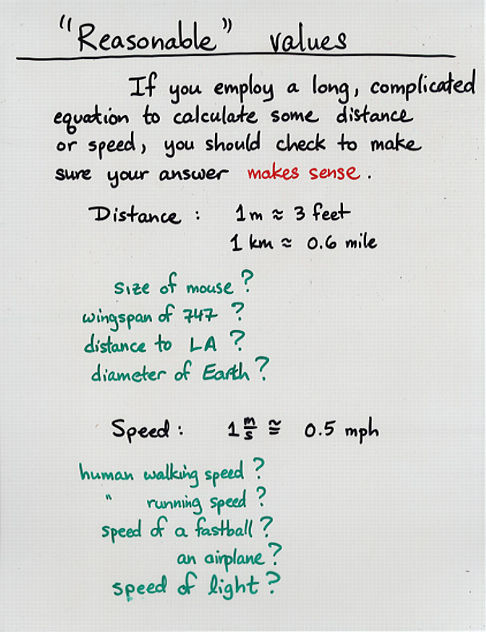 "Reasonable" values
If you employ a long, complicated
equation to calculate some distance
or speed, you should check to make
sure your answer makes sense.
Distance : 1m ≈ 3 feet
1 km ≈ 0.6 mile
size of mouse ?
wingspan of 747 ?
distance to LA ?
diameter of Earth ?
Speed : 1 m/s ≅ 0.5 mph
human walking speed ?
" running speed ?
speed of a fastball ?
an airplane ?
speed of light ?